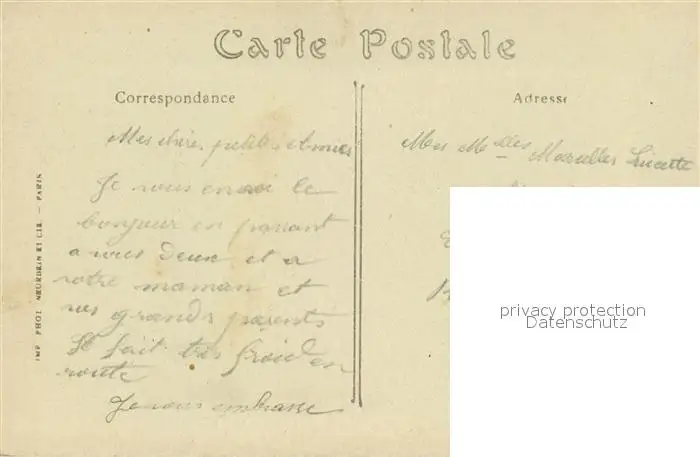 Carte Postale
Correspondance
Adresse
Mes chères petites Amies
Je vous envoi le
bonjour en passant
a vous deux et a
votre maman et
vos grands parents
Il fait très froid en
route
Je vous embrasse
Mes Melles Lucette
IMP. PHOT. NEURDEIN ET CIE. — PARIS
privacy protection
Datenschutz